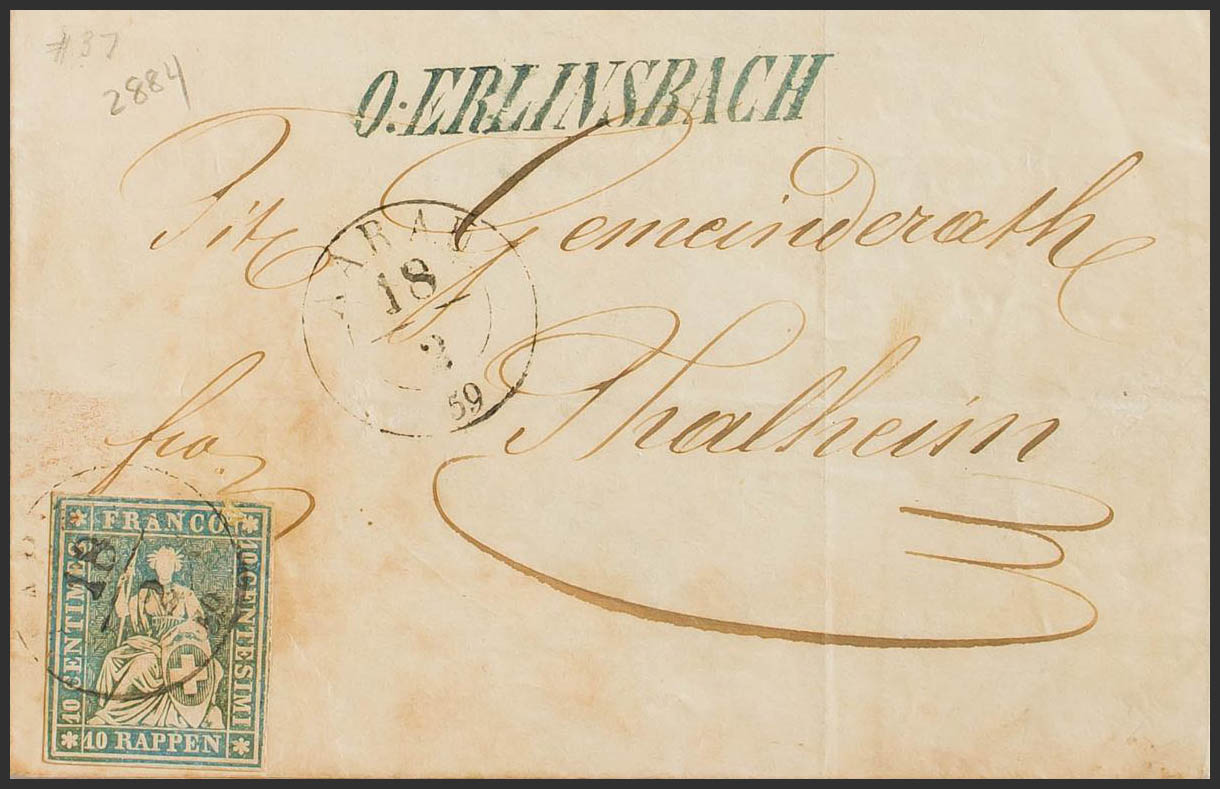 #37
2884
O:ERLINSBACH
Tit. Gemeinderath
AARAU
18
59
fro.
Thalheim
FRANCO
10 CENTIMES
10 CENTESIMI
10 RAPPEN
18